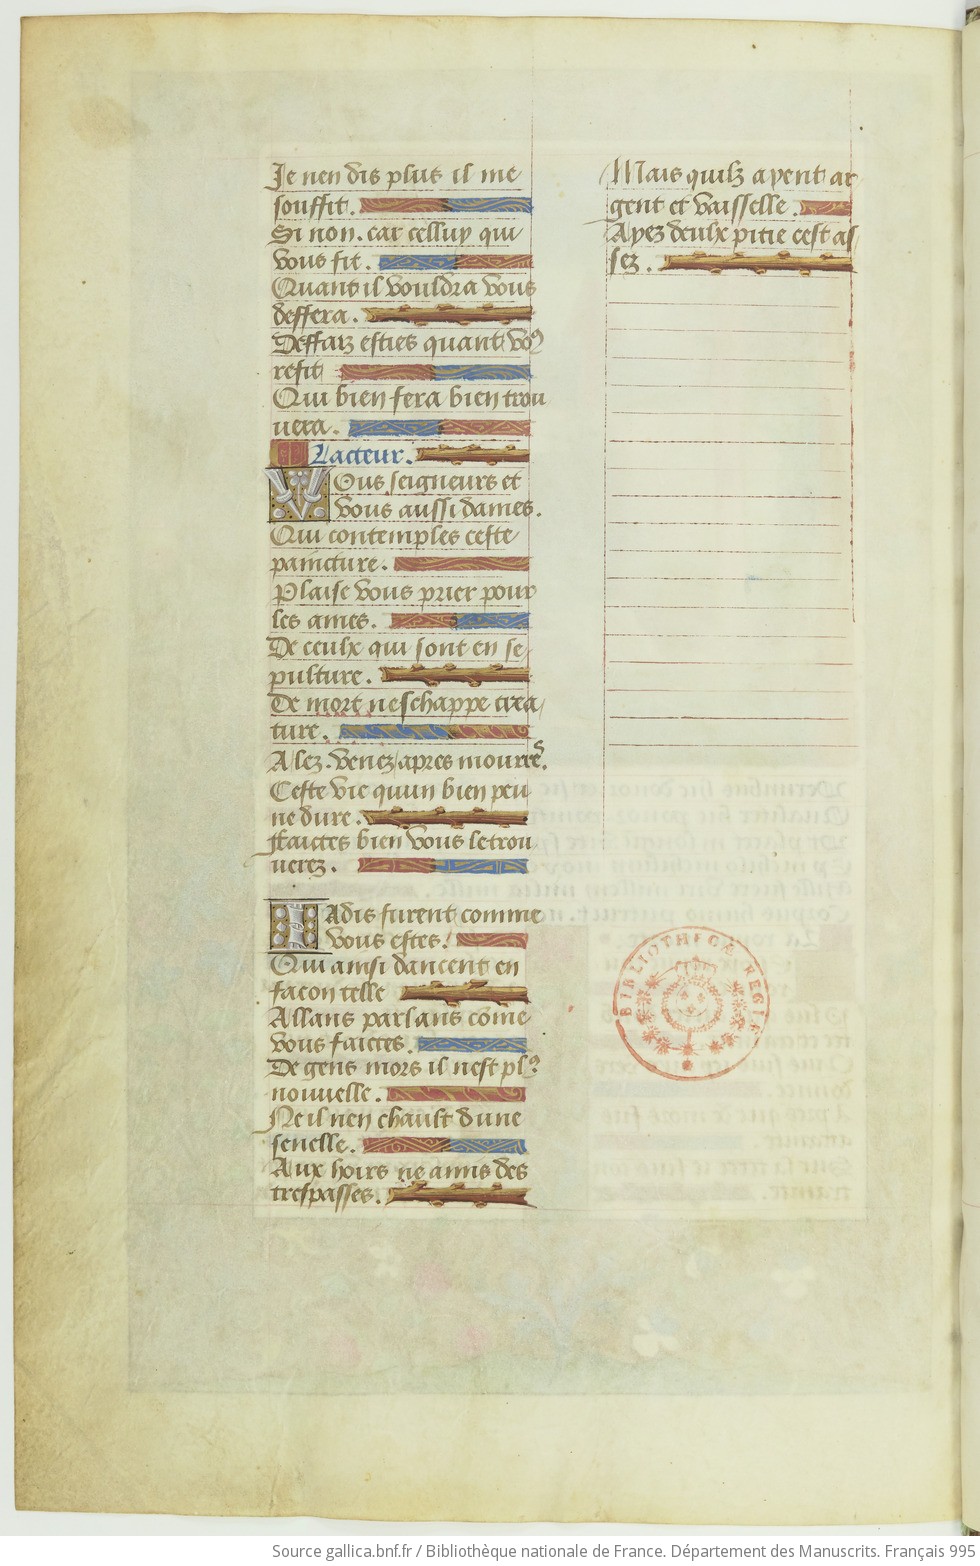 Je nen dis plus il me
souffit.
Si non. car celluy qui
vous fit.
Quant il vouldra vous
deffera.
Deffaiz esties quant vo9
refit
Qui bien fera bien trou
uera.
Lacteur.
Vous seigneurs et
vous aussi dames.
Qui contemples ceste
paincture.
Plaise vous prier pour
les ames.
De ceulx qui sont en se
pulture.
De mort neschappe crea
ture.
Alez. venez apres mourrés.
Ceste vie quun bien peu
ne dure.
Faictes bien vous le trou
uerez.
Iadis furent comme
vous estes.
Qui ainsi dancent en
facon telle
Allans parlans cōme
vous faictes.
De gens mors il nest pl9
nouuelle.
Ne il nen chault dune
senelle.
Aux hoirs ne amis des
trespasses.
Mais quilz ayent ar
gent et vaisselle.
Ayez deulx pitie cest as
sez.
BIBLIOTHECAE REGIAE
Source gallica.bnf.fr / Bibliothèque nationale de France. Département des Manuscrits. Français 995